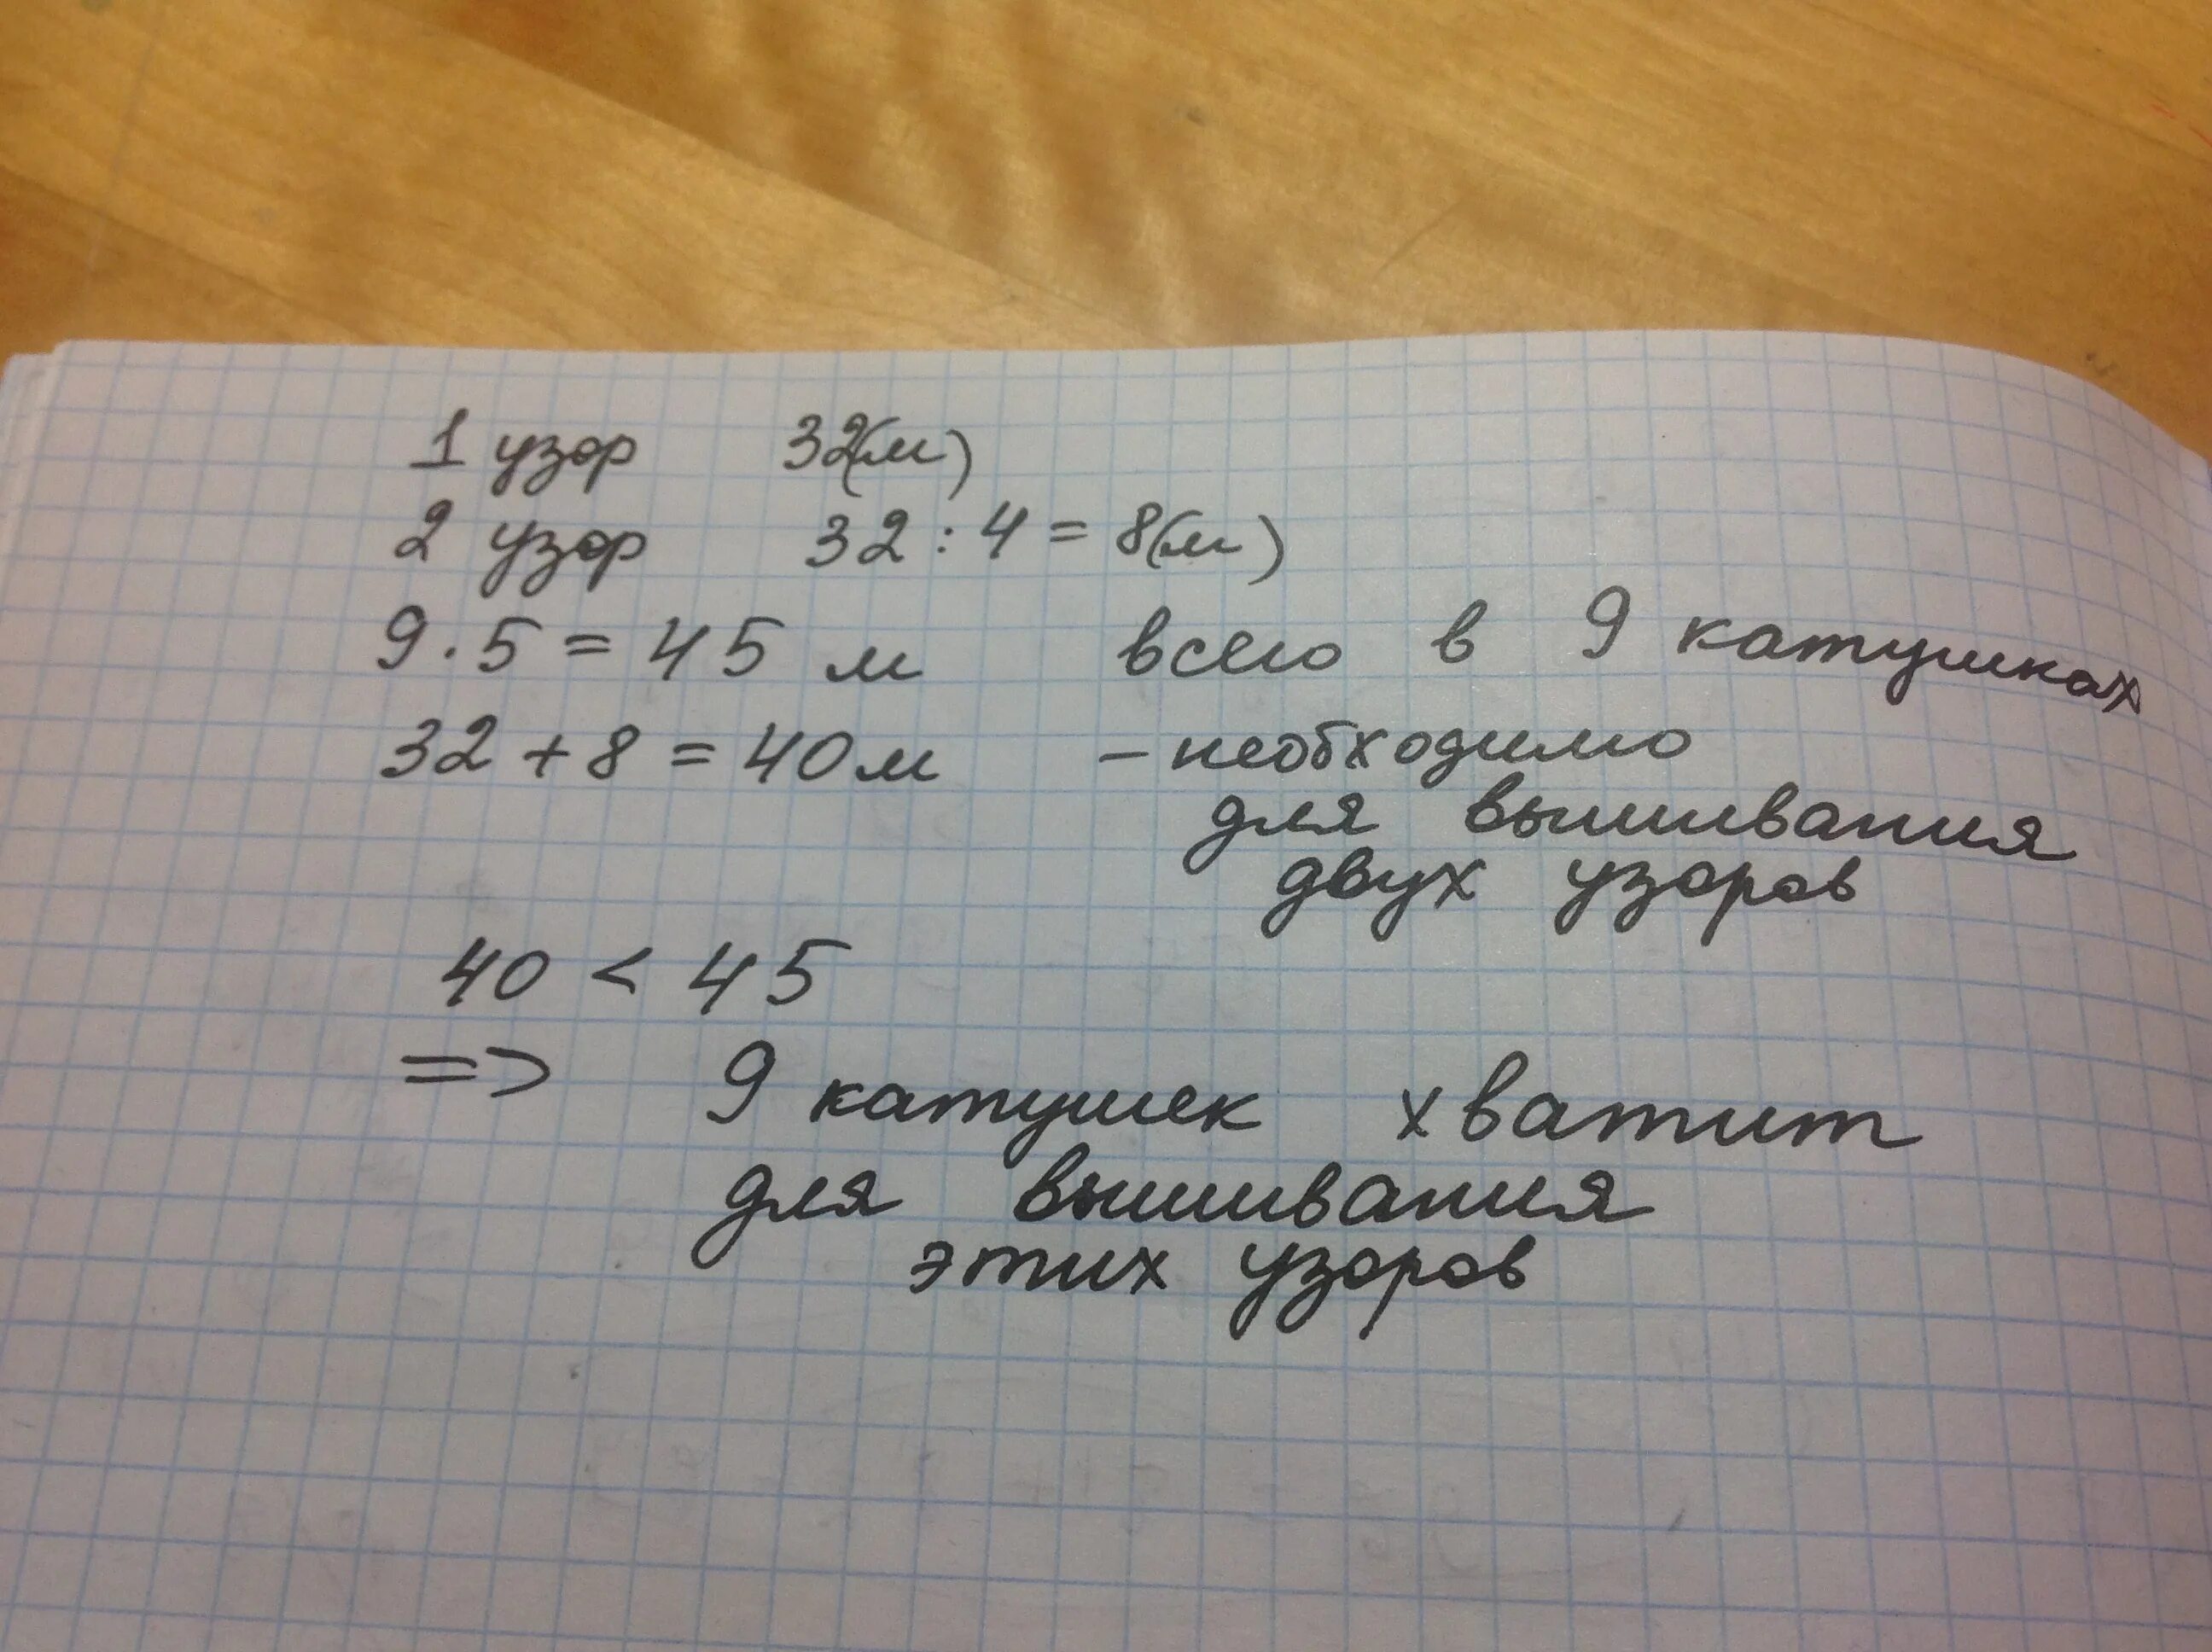 1 узор 32(м)
2 узор 32 : 4 = 8(м)
9 · 5 = 45 м всего в 9 катушках
32 + 8 = 40 м – необходимо
для вышивания
двух узоров
40 < 45
=> 9 катушек хватит
для вышивания
этих узоров